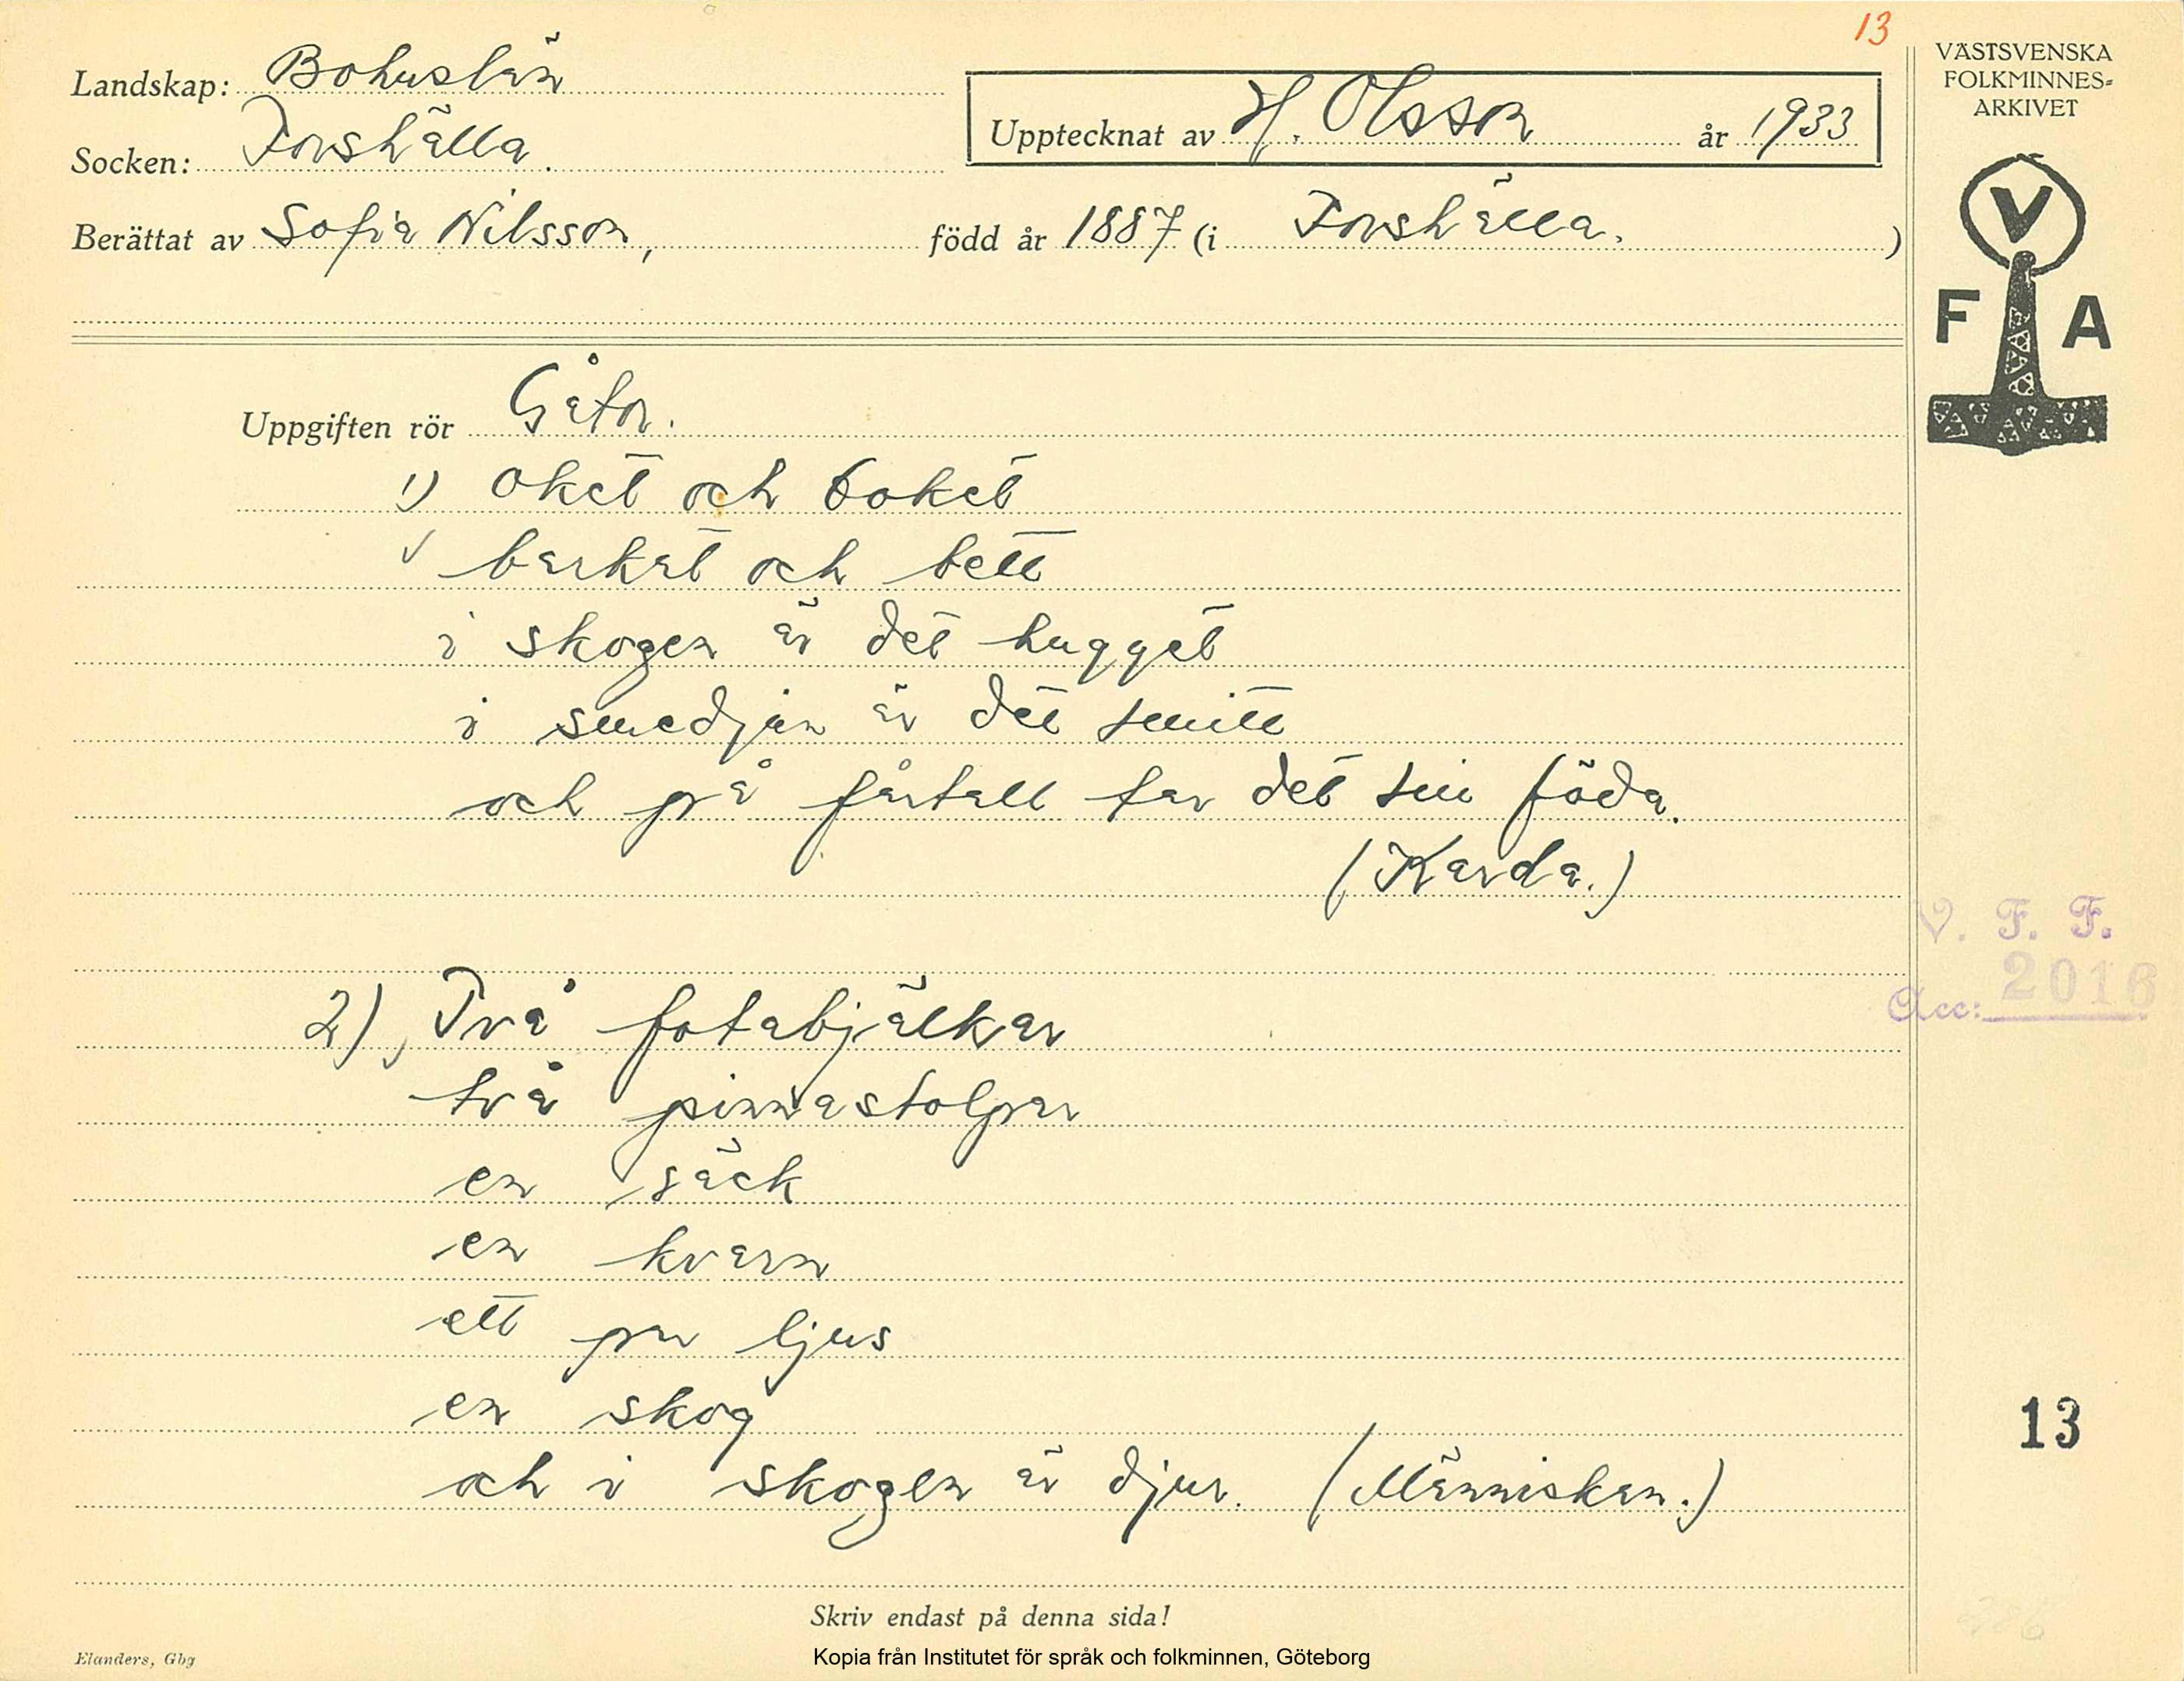 13
Landskap: Bohuslän
Socken: Forshälla.
Upptecknat av H. Olsson år 1933
Berättat av Sofia Nilsson, född år 1887 (i Forshälla. )
VÄSTSVENSKA
FOLKMINNES-
ARKIVET
V
F A
Uppgiften rör Gåtor.
1) oket och toket
barkat och tett
i skogen är det hugget
i smedjan är det smitt
och på fårtall tar det sin föda.
(Karda.)
V. F. F.
Acc: 2016
2) Två fotabjälkar
två pinnastolpar
en säck
en kvarn
ett par ljus
en skog
och i skogen är djur. (Människan.)
13
Skriv endast på denna sida!
Kopia från Institutet för språk och folkminnen, Göteborg
Elanders, Gbg